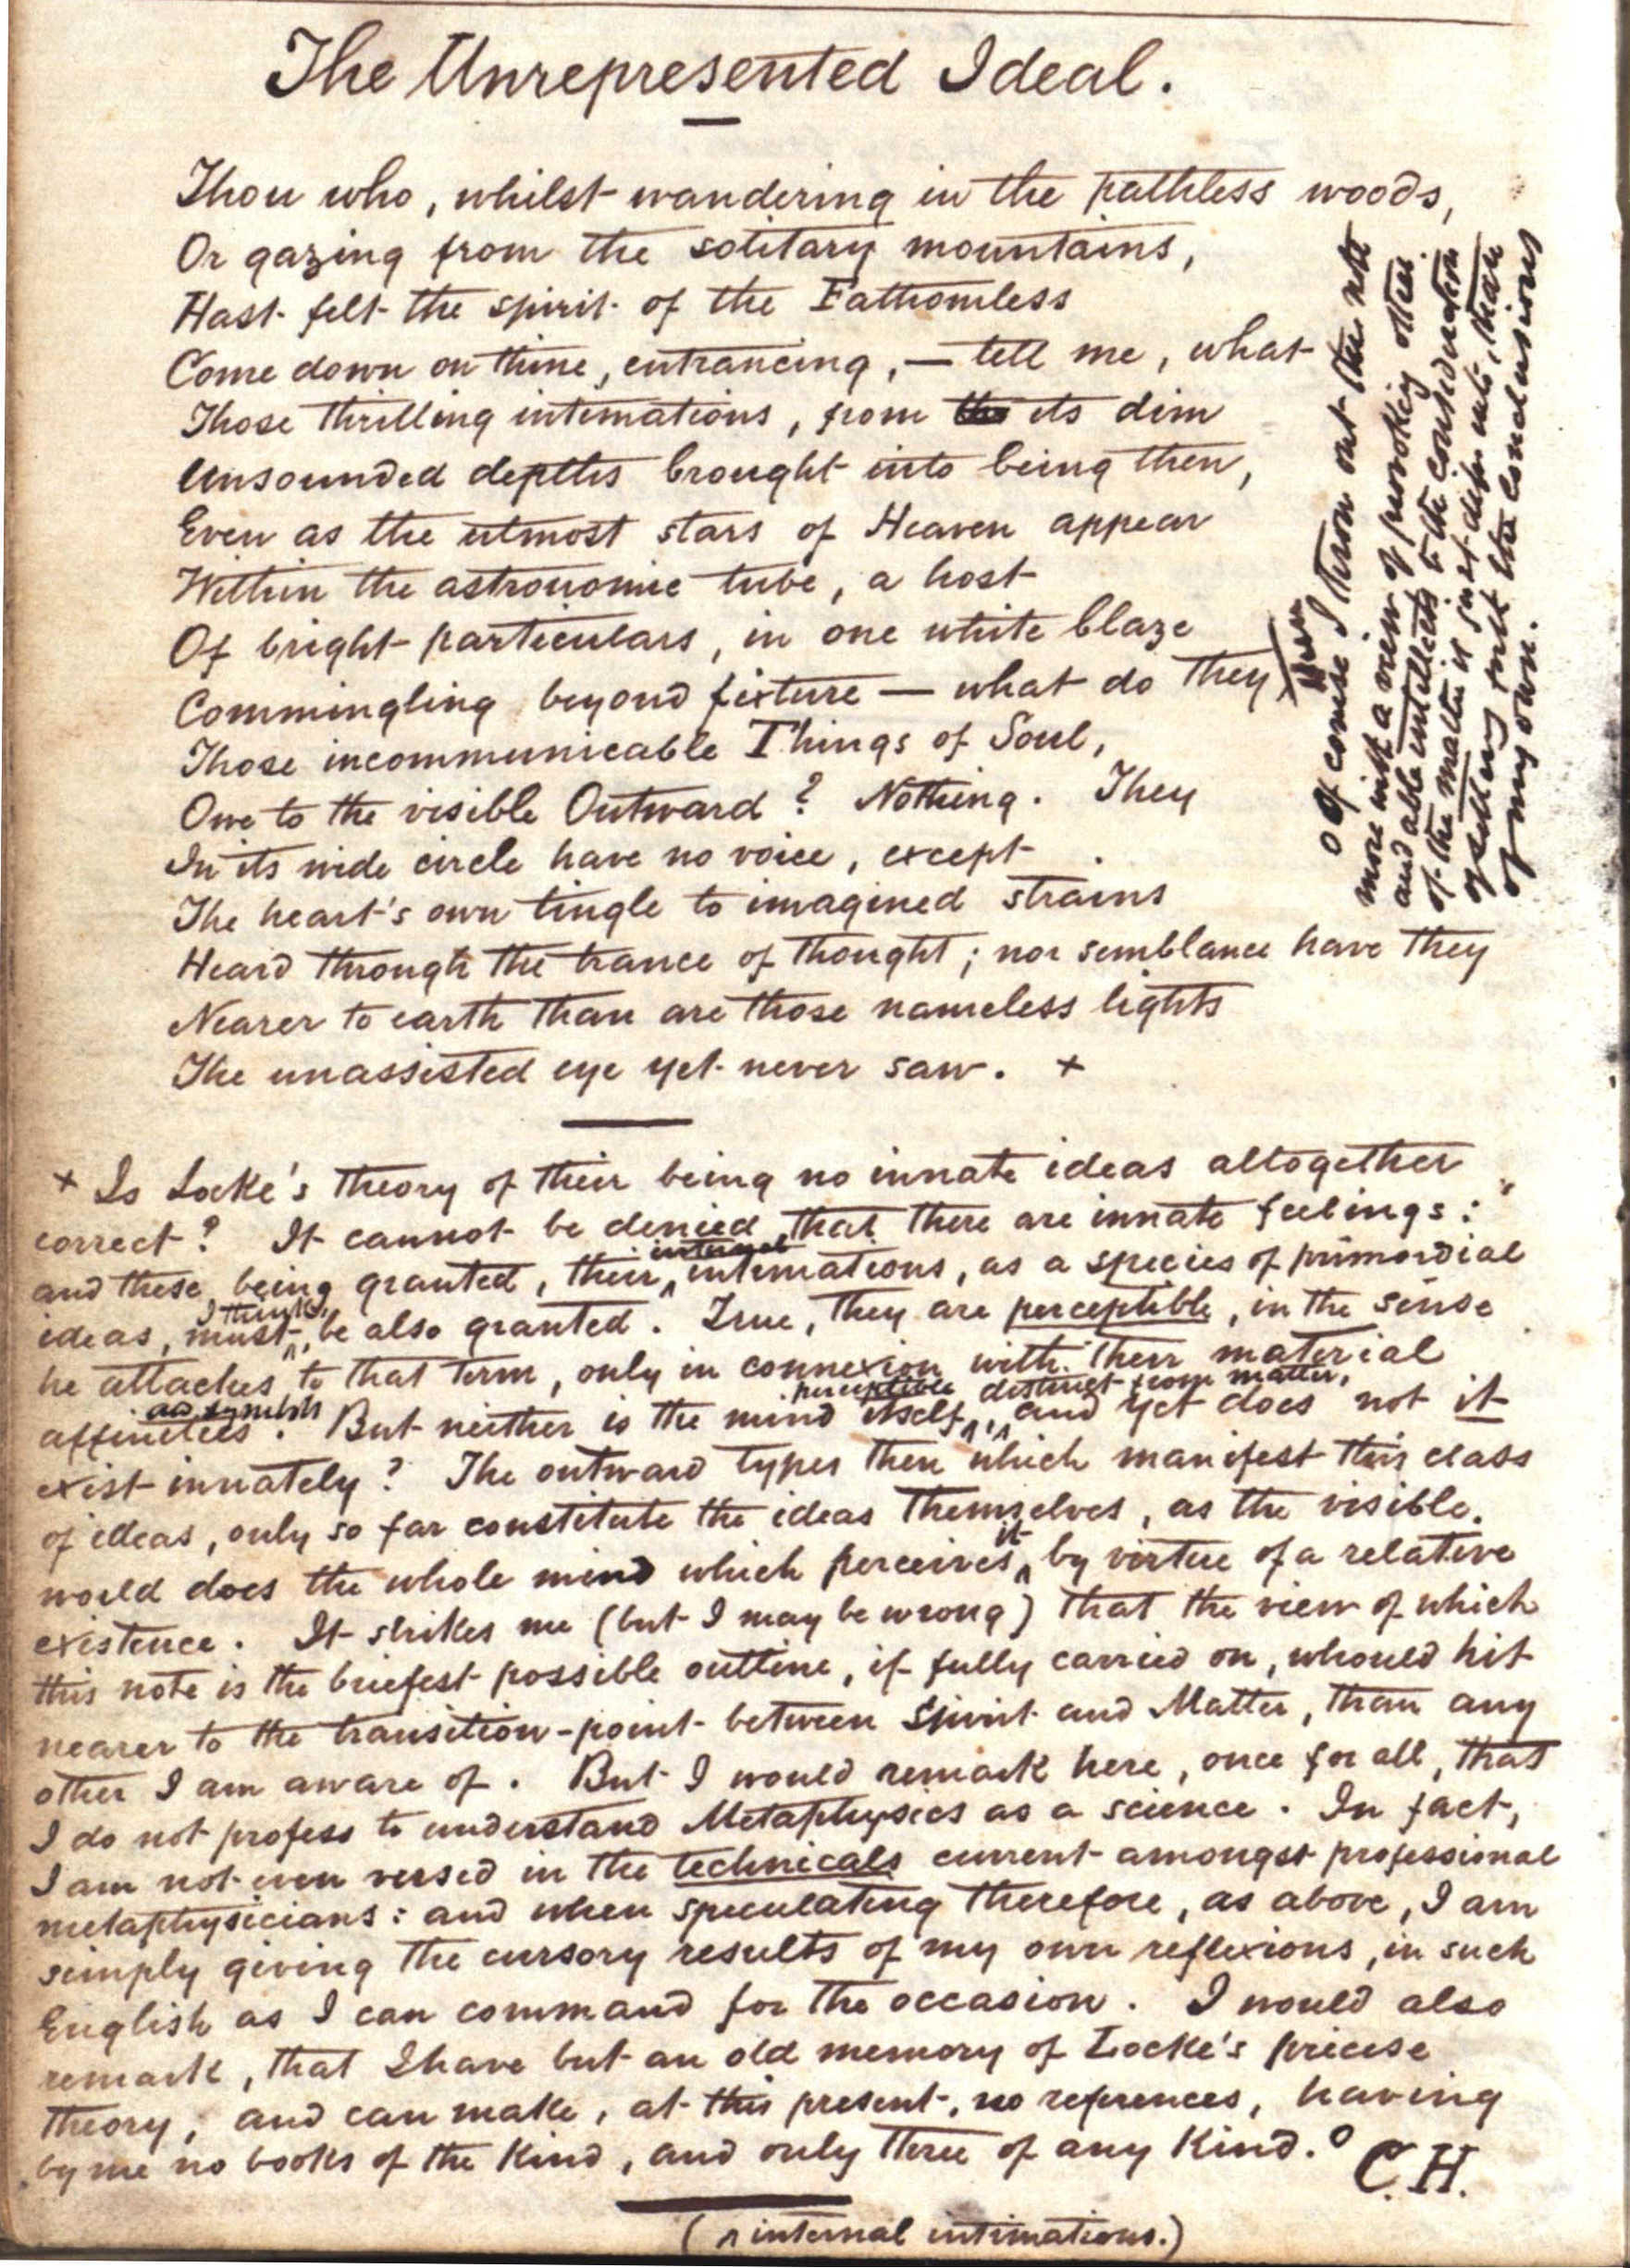 The Unrepresented Ideal.
Thou who, whilst wandering in the pathless woods,
Or gazing from the solitary mountains,
Hast felt the spirit of the Fathomless
Come down on thine, entrancing, — tell me, what
Those thrilling intimations, from the its dim
Unsounded depths brought into being then,
Even as the utmost stars of Heaven appear
Within the astronomic tube, a host
Of bright particulars, in one white blaze
Commingling beyond fixture — what do they
Those incommunicable Things of Soul,
Owe to the visible Outward? Nothing. They
In its wide circle have no voice, except
The heart's own tingle to imagined strains
Heard through the trance of thought; nor semblance have they
Nearer to earth than are those nameless lights
The unassisted eye yet never saw. +
+ Is Locke's theory of their being no innate ideas altogether
correct? It cannot be denied that there are innate feelings:
and these being granted, their ^ intimations, as a species of primordial
I think,
ideas, must ^ be also granted. True, they are perceptible, in the sense
he attaches to that term, only in connexion with their material
as symbols perceptible distinct from matter,
affinities. But neither is the mind itself ^, ^ and yet does not it
exist innately? The outward types then which manifest this class
of ideas, only so far constitute the ideas themselves, as the visible
it
world does the whole mind which perceives ^ by virtue of a relative
existence. It strikes me (but I may be wrong) that the view of which
this note is the briefest possible outline, if fully carried on, whould hit
nearer to the transition-point between Spirit and Matter, than any
other I am aware of. But I would remark here, once for all, that
I do not profess to understand Metaphysics as a science. In fact,
I am not even versed in the technicals current amongst professional
metaphysicians: and when speculating therefore, as above, I am
simply giving the cursory results of my own reflexions, in such
English as I can command for the occasion. I would also
remark, that I have but an old memory of Locke's precise
theory, and can make, at this present, no references, having
by me no books of the kind, and only three of any kind. o
C.H.
(^ internal intimations.)
o Of course I throw out the note
more with a view of provoking other
and able intellects to the consideration
of the matter is
of setting forth the conclusions
of my own.